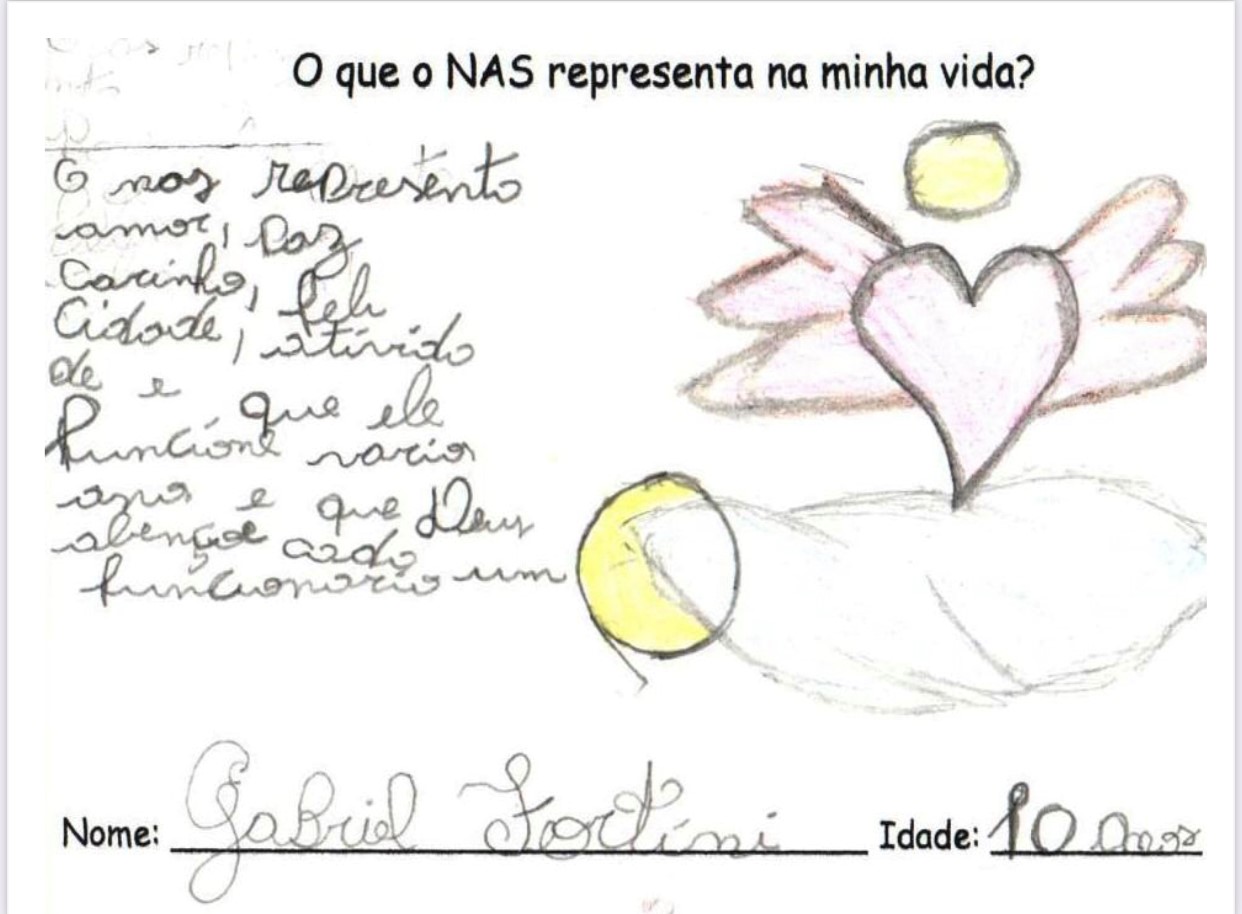 O que o NAS representa na minha vida?
O nas represento
amor, Paz
Carinho, feli
Cidade, atividade
de e que ele
funcione varios
anos e que Deus
abençoe cada
funcionario um
Nome: Gabriel Fortini Idade: 10 anos